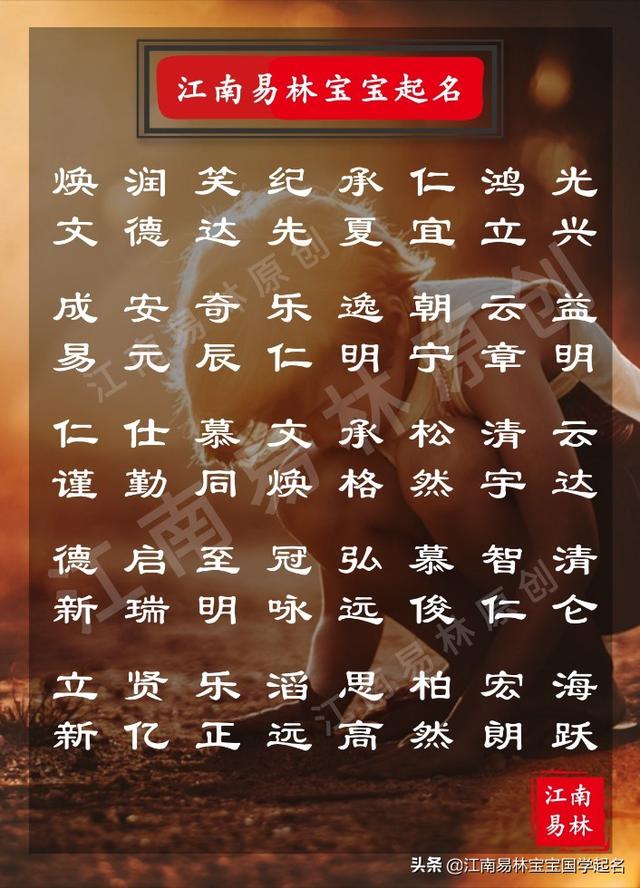 江南易林宝宝起名
焕 润 笑 纪 承 仁 鸿 光
文 德 达 先 夏 宜 立 兴
成 安 奇 乐 逸 朝 云 益
易 元 辰 仁 明 宁 章 明
仁 仕 慕 文 承 松 清 云
谨 勤 同 焕 格 然 宇 达
德 启 至 冠 弘 慕 智 清
新 瑞 明 咏 远 俊 仁 仑
立 贤 乐 滔 思 柏 宏 海
新 亿 正 远 高 然 朗 跃
江南易林原创
江南易林原创
江南易林原创
江南
易林
头条 @江南易林宝宝国学起名